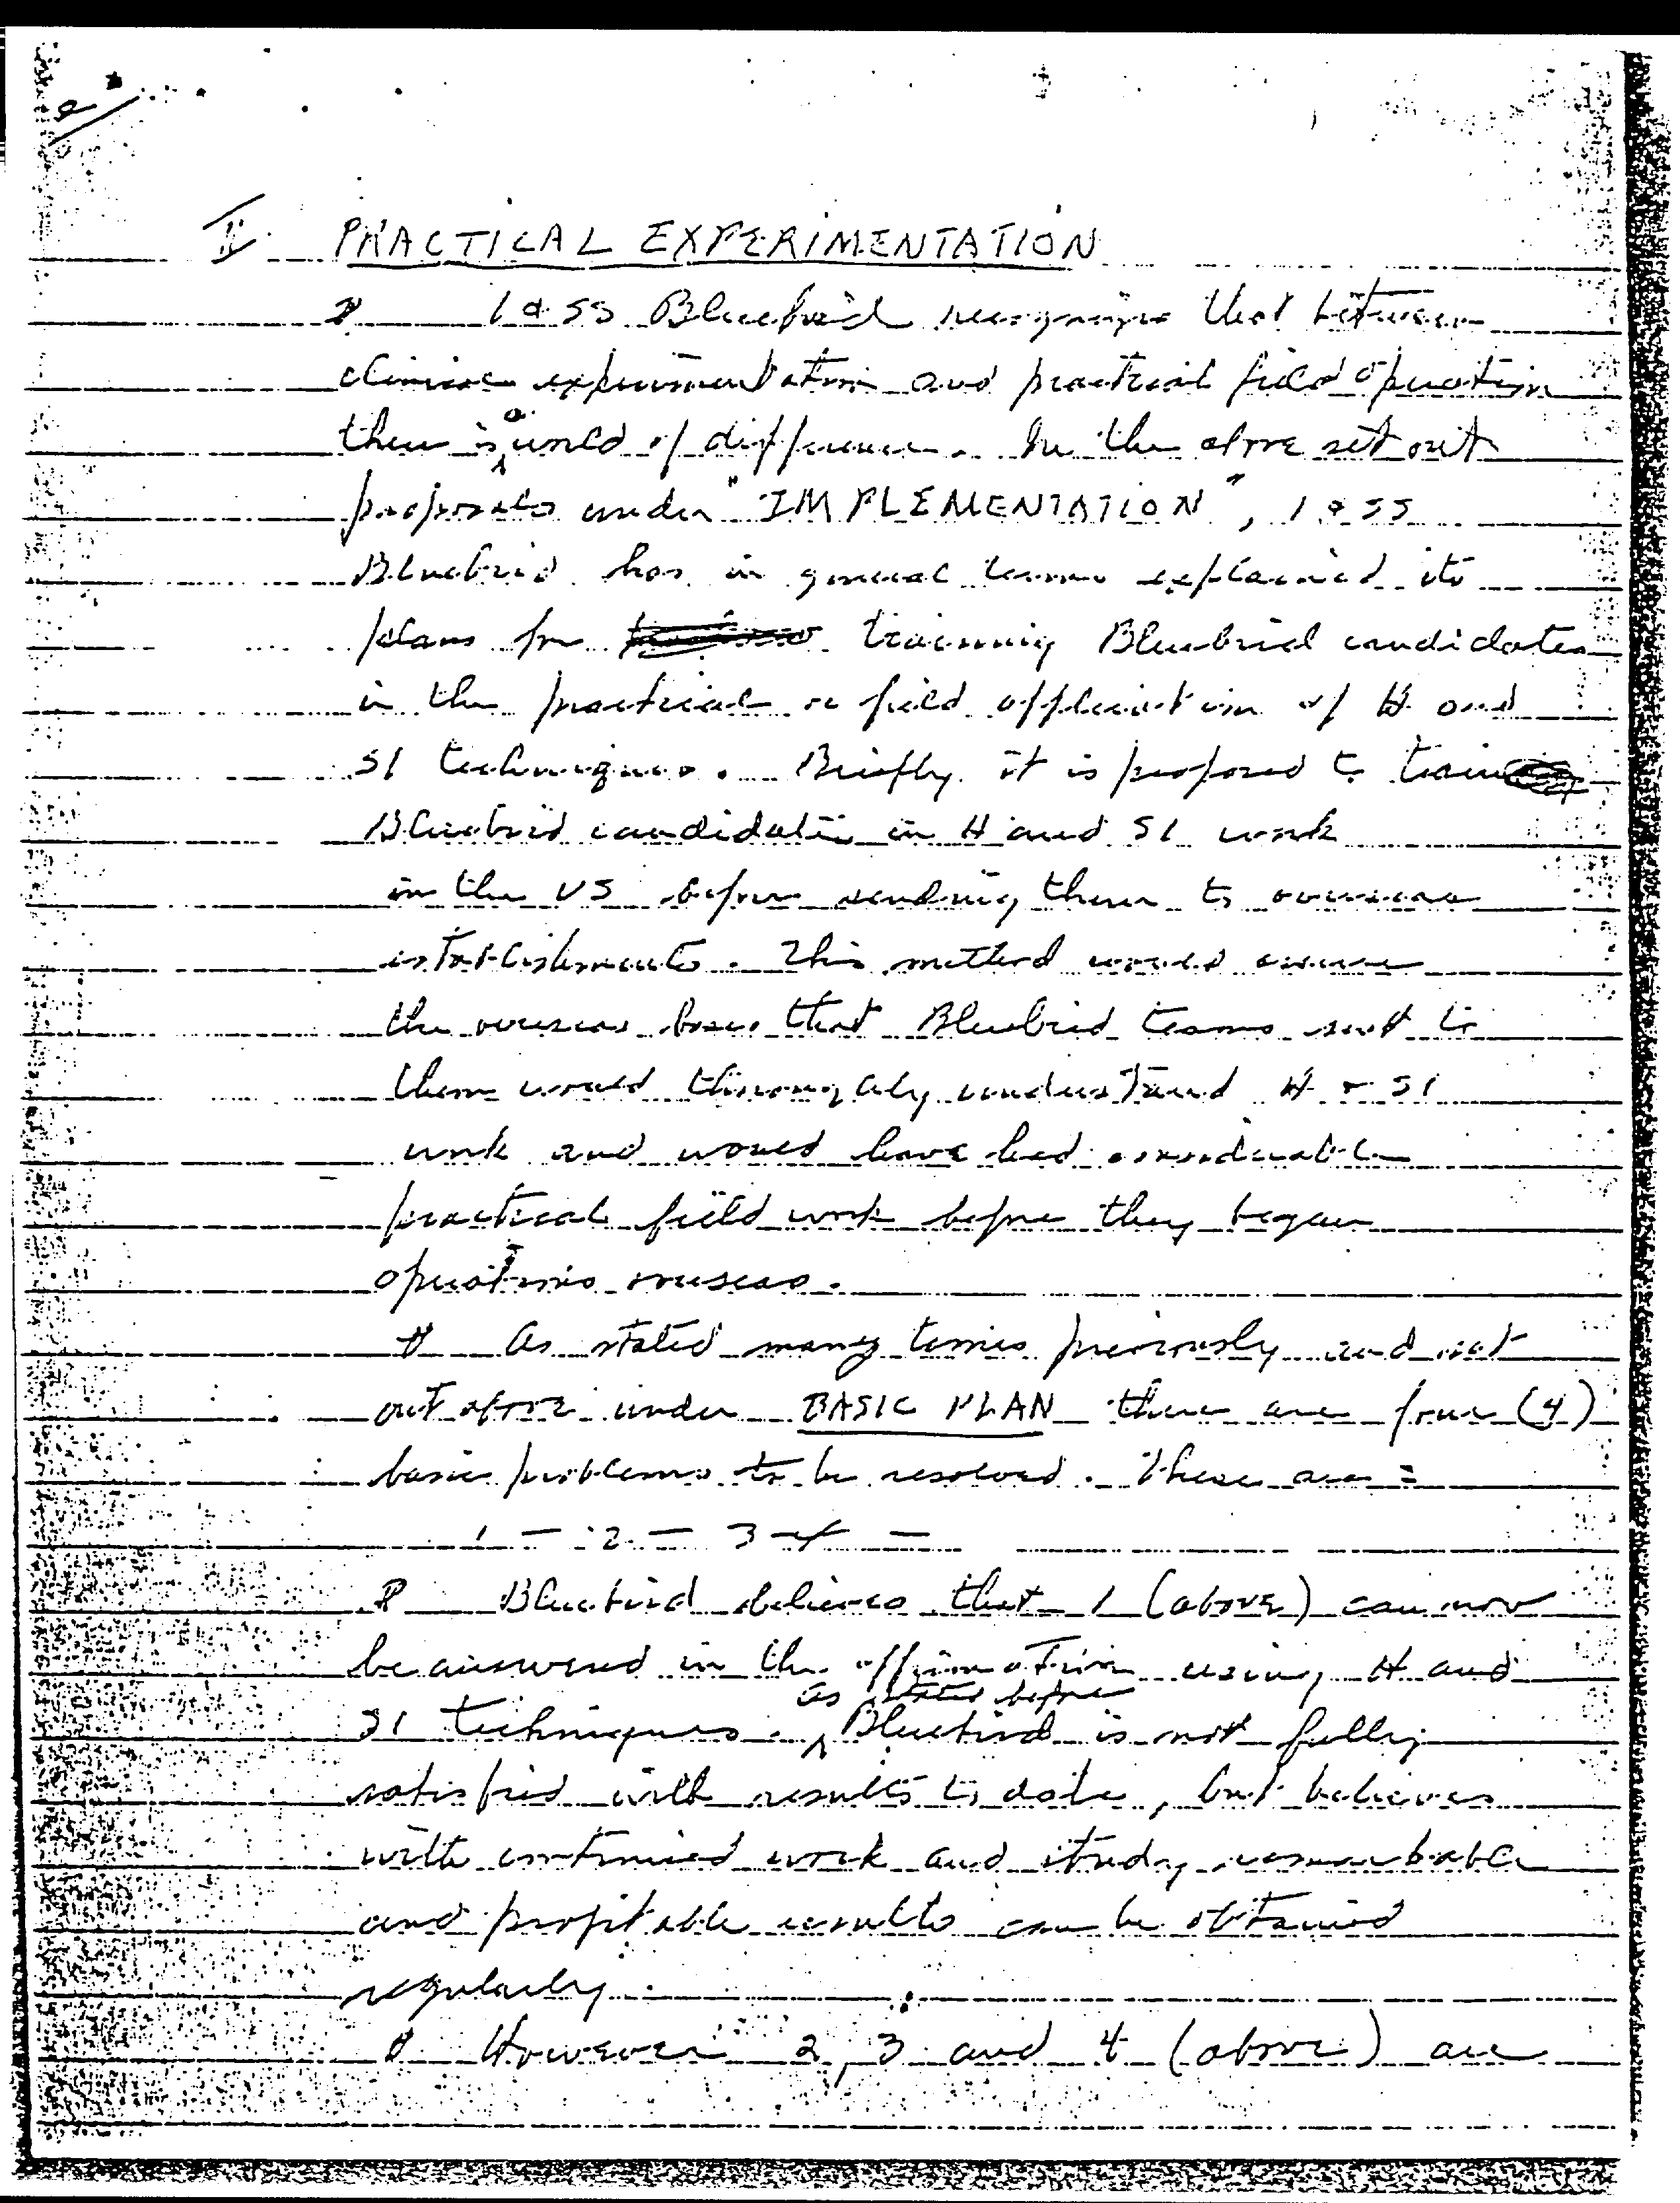 II. PRACTICAL EXPERIMENTATION
I & SS Bluebird recognizes that between
clinical experimentation and practical field operation
there is a world of difference. In the above set out
proposals under "IMPLEMENTATION", I & SS
Bluebird has in general terms explained its
plans for training Bluebird candidates
in the practical or field application of H and
SI techniques. Briefly it is proposed to train
Bluebird candidates in H and SI work
in the US before sending them to overseas
establishments. This method would assure
the overseas bases that Bluebird teams sent to
them would thoroughly understand H & SI
work and would have had considerable
practical field work before they began
operations overseas.
As stated many times previously and set
out above under BASIC PLAN there are four (4)
basic problems to be resolved. These are:
1 — 2 — 3 — 4 —
Bluebird believes that 1 (above) can now
be answered in the affirmative using H and
SI techniques. as stated before Bluebird is not fully
satisfied with results to date, but believes
with continued work and study remarkable
and profitable results can be obtained
regularly.
However 2, 3 and 4 (above) are